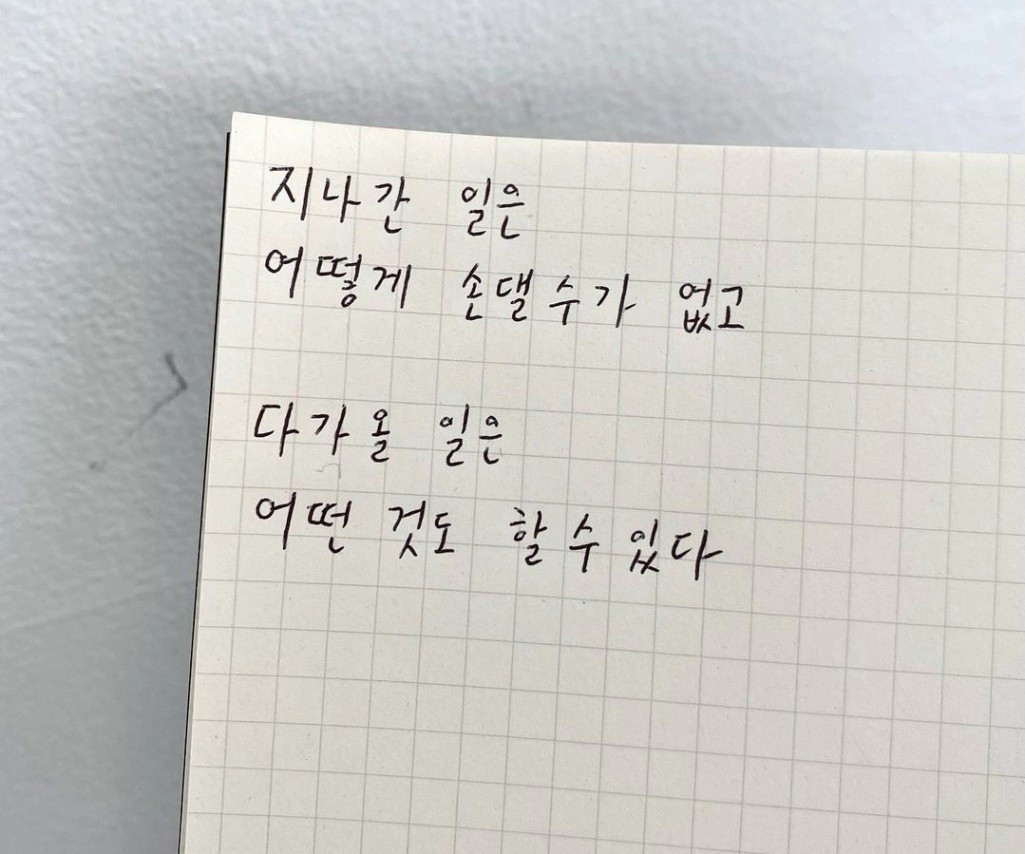 지나간 일은
어떻게 손댈수가 없고
다가올 일은
어떤 것도 할 수 있다